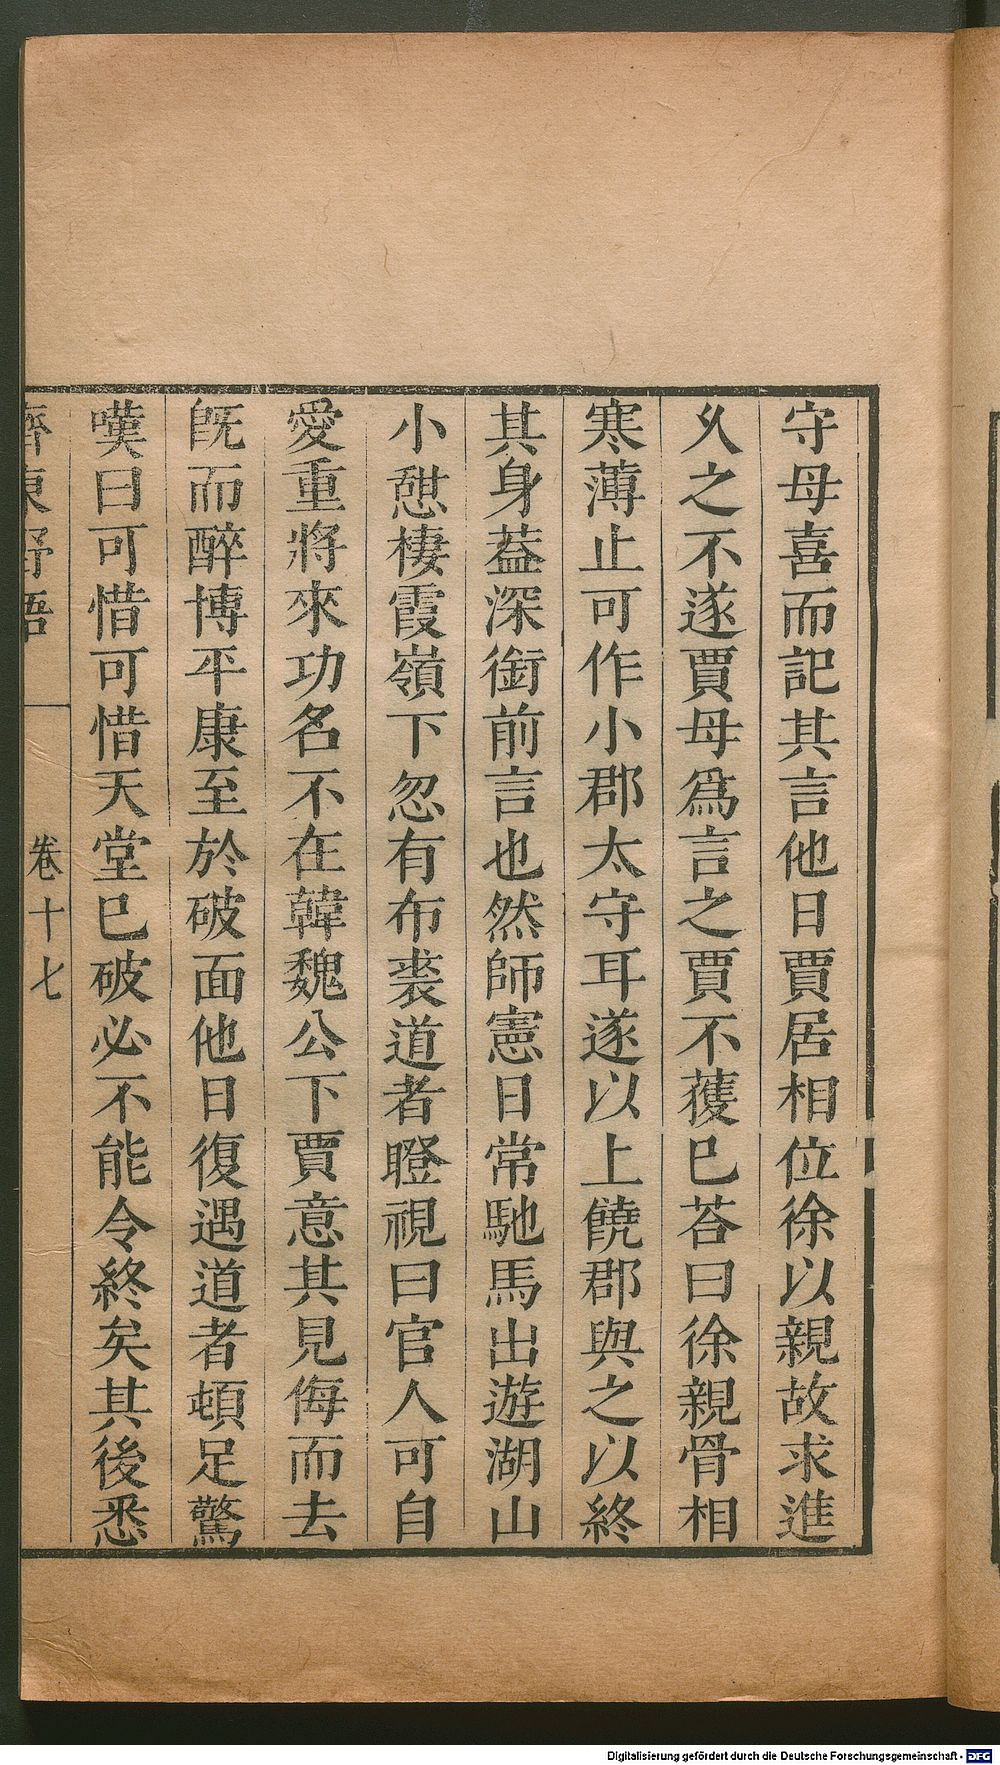 守母喜而記其言他日賈居相位徐以親故求進
乆之不遂賈母爲言之賈不獲已荅曰徐親骨相
寒薄止可作小郡太守耳遂以上饒郡與之以終
其身葢深銜前言也然師憲日常馳馬出遊湖山
小憇棲霞嶺下忽有布裘道者瞪視曰官人可自
愛重將來功名不在韓魏公下賈意其見侮而去
旣而醉博平康至於破面他日復遇道者頓足驚
嘆曰可惜可惜天堂已破必不能令終矣其後悉
齊東野語 卷十七
Digitalisierung gefördert durch die Deutsche Forschungsgemeinschaft - DFG